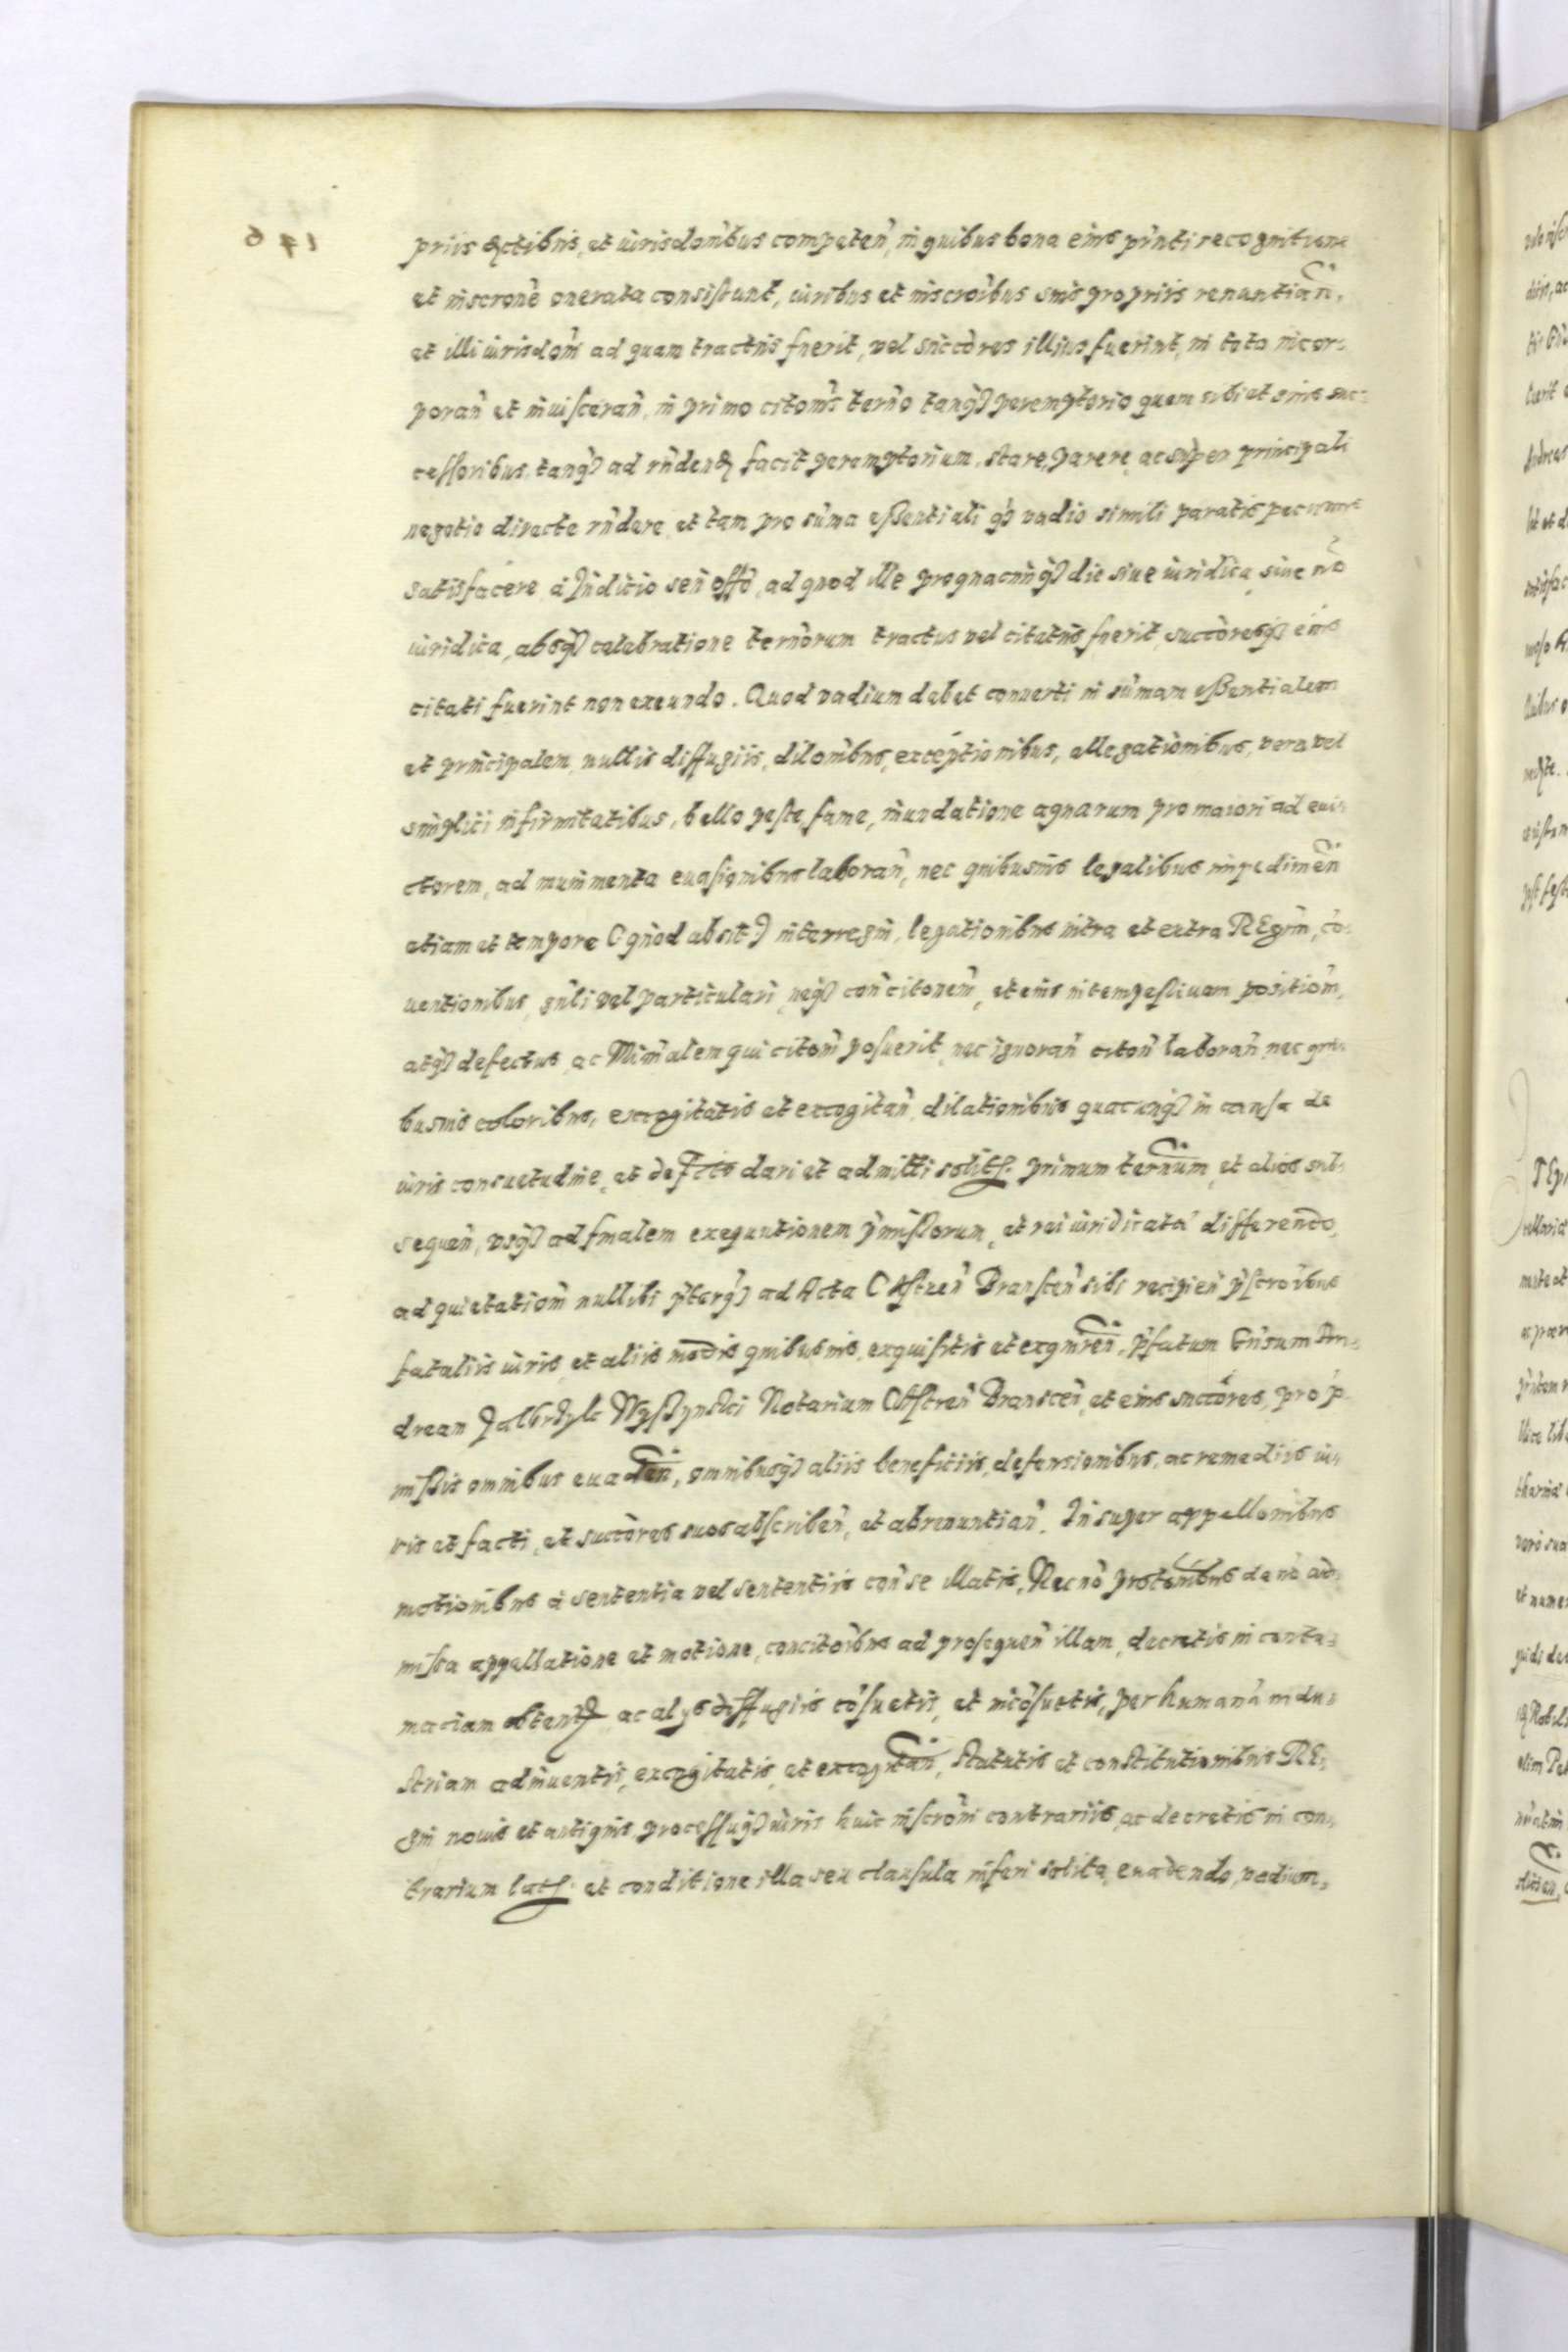 priis Actibus, et iurisdonibus competen, in quibus bona eius pnti recognitione
et inscrone onerata consistunt, iuribus et inscroibus suis propriis renuntian,
et illi iurisdom ad quam tractus fuerit, vel succores illius fuerint, in toto incor-
poran et inuisceran, in primo citonis terno tanq peremptorio quem sibi et suis suc-
cessoribus, tanq ad rnden facit peremptorium, stare, parere, ac super principali
negotio directe rndere, et tam pro suma essentiali q vadio simili paratis pecuniis
satisfacere, a Iudicio seu offo, ad quod ille proqnacunq die siue iuridica, siue no
iuridica, absq celebratione ternorum tractus vel citatus fuerit, succoresq eius
citati fuerint non exeundo. Quod vadium debet conuerti in sumam essentialem
et principalem, nullis diffugiis, dilonibus, exceptionibus, allegationibus, vera vel
simplici infirmitatibus, bello peste, fame, inundatione aquarum pro maiori ad eui-
ctorem, ad munimenta euasionibus laboran, nec quibusuis legalibus impedimen
etiam et tempore (quod absit) interregni, legationibus intra et extra REgm, co-
uentionibus, gnli vel particulari, neq con citonem, et eius intempestiuam positiom,
atq defectus, ac Mimalem qui citom posuerit, nec ignoran citon laboran, nec qui-
busuis coloribus, excogitatis et excogitan, dilationibus quacunq in causa de
iuris consuetudine, et de fcto dari et admitti solits. primum ternum, et alios sub-
sequen, vsq ad finalem exequutionem pmissorum, et rei iuridicata differendo,
ad quietatiom nullibi pterq ad Acta Castren Branscen sibi recipien pscroibus
fataliis iuris, et aliis modis quibusuis, exquisitis et exquiren, pfatum Gnsum An-
drean Wyssynski Notarium Castren Branscen, et eius succores, pro p-
missis omnibus euaden, omnibusq aliis beneficiis, defensionibus, ac remediis iu-
ris et facti, et succores suos abscriben, et abrenuntian. In super appellonibus
motionibus a sententia vel sententiis con se illatis, Nec no protonibus de no ad-
missa appellatione et motione, concitoibus ad prosequen illam, decretis in contu-
maciam obtents, ac alys diffugiis cosuetis, et incosuetis, per humana indu-
striam adinuentis, excogitatis, et excogitan, statutis et constitutionibus RE-
gni nouis et antiquis, processuq iuris huic inscroni contrariis, ac decretis in con-
trarium lats. et conditione illa seu clausula inseri solita, euadendo, vadium,